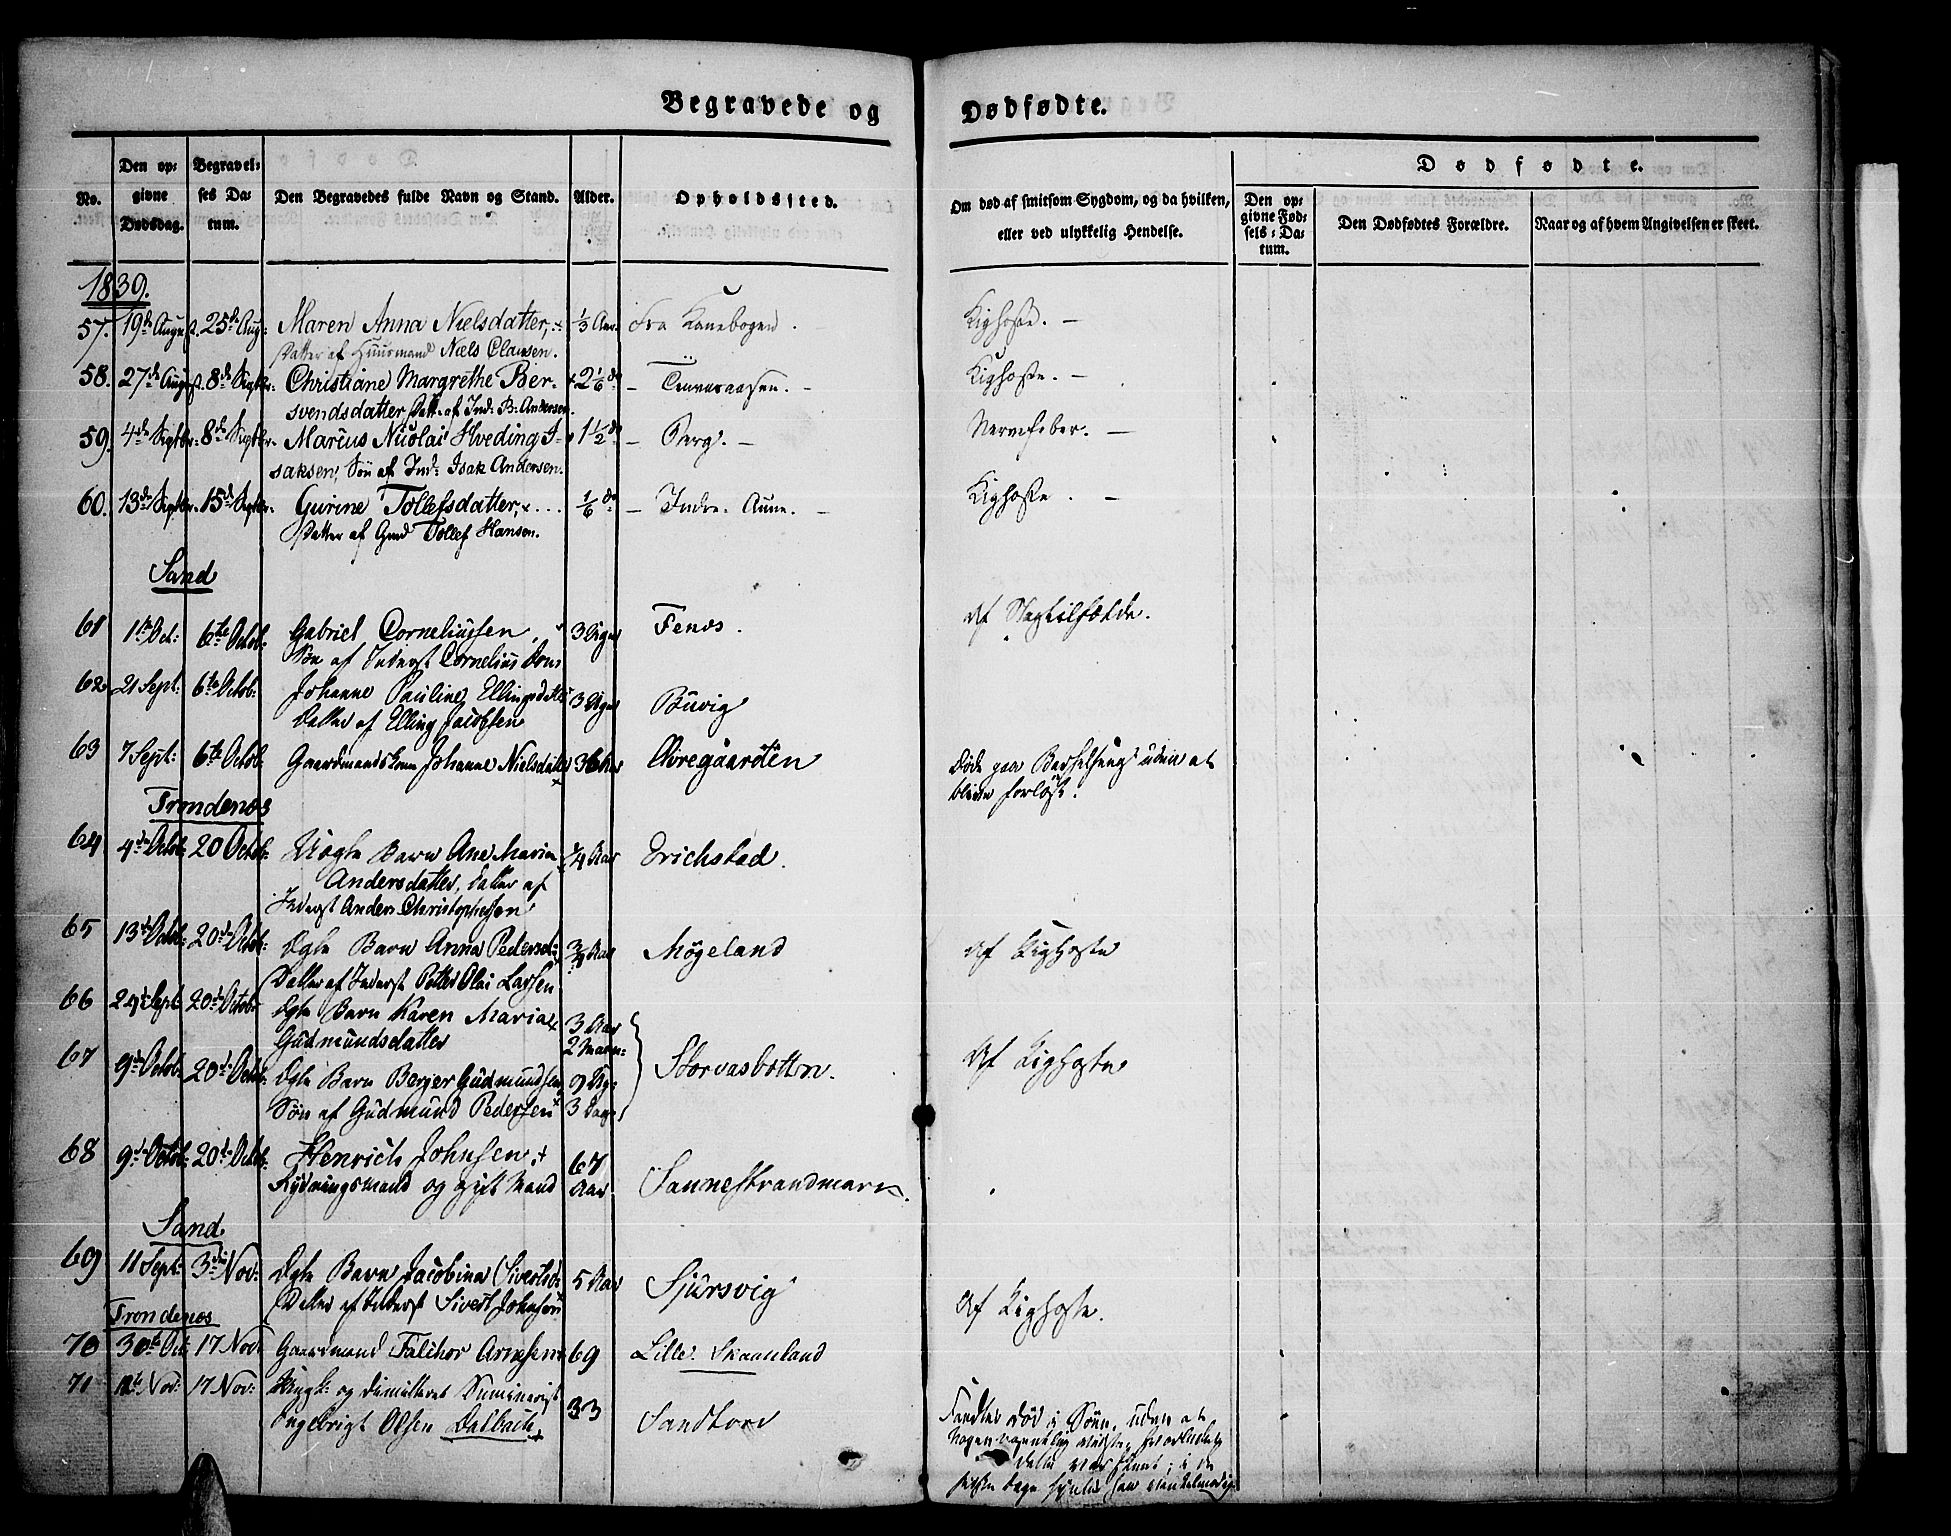 Begravede og Dødfødte.
No. Den opgivne Dødsdag. Begravelses Datum. Den Begravedes fulde Navn og Stand. Alder. Opholdssted. Om død af smitsom Sygdom, og da hvilken, eller ved ulykkelig Hendelse.
Dødfødte.
Den opgivne Fødsels-Datum. Den Dødfødtes Forældre. Naar og af hvem Angivelsen er skeet.
1839.
57. 19de August. 25de Aug: Maren Anna Nielsdatter, 1/3 Aar. Fra Kanebogen. Kighoste. —
Datter af Huusmand Niels Clausen.
58. 27de August. 8de Septbr. Christiane Margrethe Ber- 2 1/6 do — Kighoste. —
svendsdatter, Datt. af Ind: B. Andersen.
59. 4de Septbr. 8de Septbr. Marcus Nicolai Hveding I- 1 1/2 do — Berg. — Nervefeber. —
saksen, Søn af Ind: Isak Andersen.
60. 13de Septbr. 15de Septbr. Gurine Tollefsdatter, 1/6 do — Indre Aune. — Kighoste. —
Datter af Gmd Tollef Hansen.
Sand
61 1te Oct: 6te Octob: Gabriel Corneliussen, 3 Uger Fenes. af Slagtilfælde.
Søn af Inderst Cornelius
62 21 Sept: 6te Octob: Johanne Pauline Ellingsdatter 3 Uger Buvig
Datter af Elling Jacobsen
63 7 Sept: 6te Octob: Gaardmandskone Johanne Nielsdatter 36 Aar Øvregaarden Døde paa Barselseng uden at
blive forløst.
Trondenes
64 4de Octob: 20 Octob: Uægte Barn Ane Maria 1/4 Aar Erichstad.
Andersdatter, Datter af
Inderst Anders Christophersen
65 13de Octob: 20de Octob: Ægte Barn Anna Pedersd: 3/4 Aar Møgeland af Kighoste
Datter af Inderst Petter Olai Larsen
66 24de Sept 20de Octob: Ægte Barn Karen Maria 3 Aar
Gudmundsdatter 2 Maan:
67 9de Octob: 20de Octob: Ægte Barn Berger Gudmundsen 9 Uger Storvasbotten. Af Kighoste
Søn af Gudmund Pedersen 3 Dage
68 9de Octob: 20de Octob: Henrich Johnsen, 67
Rydningsmand og gift Mand Aar Sannestrandmark.
Sand
69 11 Sept: 3die Nov: Ægte Barn Jacobina Sivertsd: 5 Aar Sjursvig Af Kighoste.
Datter af Inderst Sivert Johnsen
Trondenes
70 30te Oct 17 Nov: Gaardmand Falchor Arnesen 69 Lille Skaanland
71 12te Nov: 17 Nov: Ungk: og dimitteret Seminarist
Ingebrigt Olsen Dalbach 33 Sandtorv Fandtes død i Søen, uden at
Nogen vidste, hvorledes
dette var skeet; i de
sidste Dage syntes han